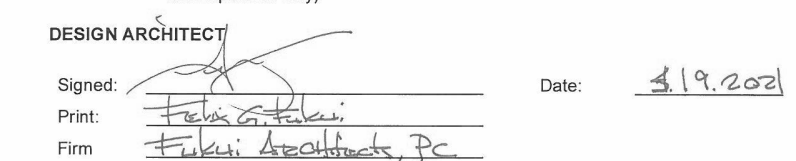 DESIGN ARCHITECT
Signed:
Date: .19.2021
Print: Felix G. Fukui
Firm Fukui Architects, PC